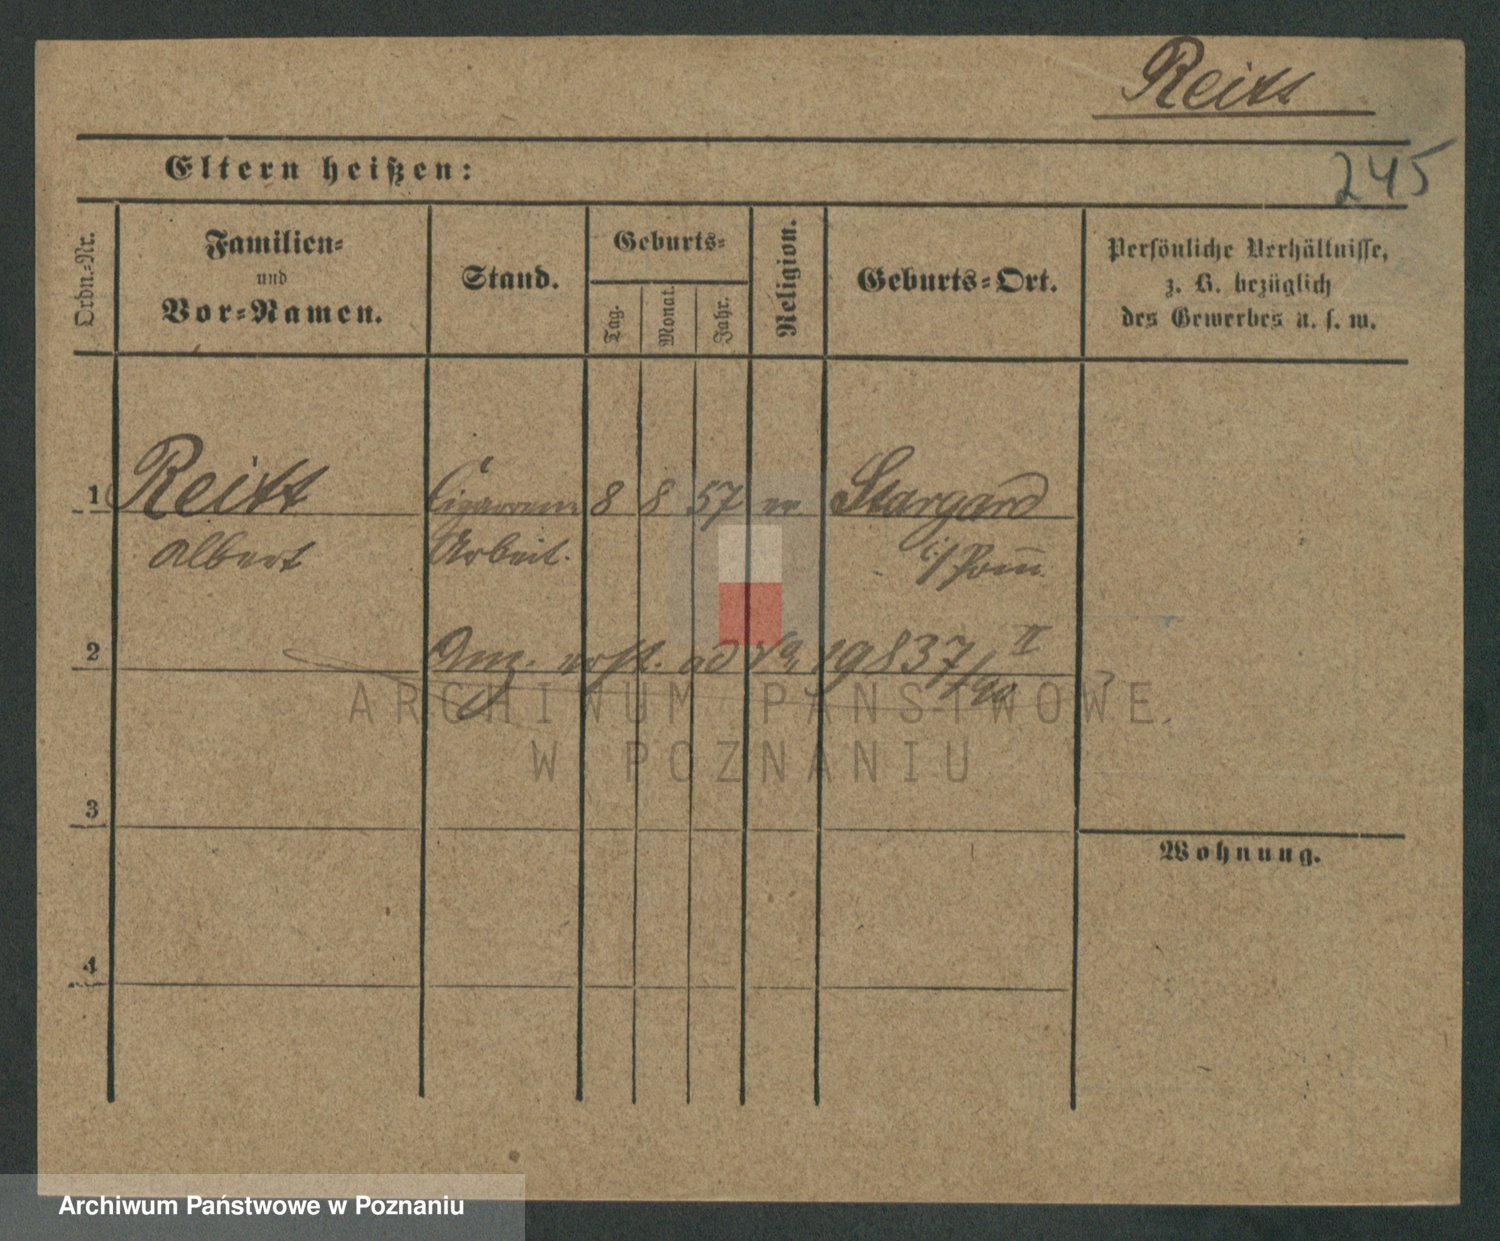 Reitt
Eltern heißen:
245
Ordn.=Nr.
Familien=
und
Vor=Namen.
Stand.
Geburts=
Tag.
Monat.
Jahr.
Religion.
Geburts=Ort.
Persönliche Verhältnisse,
z. B. bezüglich
des Gewerbes u. s. w.
1 Reitt Cigarren 8 8 57 ev Stargard
Albert Arbeit. i/Pom.
2 19837/90 II
ARCHIWUM PAŃSTWOWE
W POZNANIU
3
Wohnung.
4
Archiwum Państwowe w Poznaniu